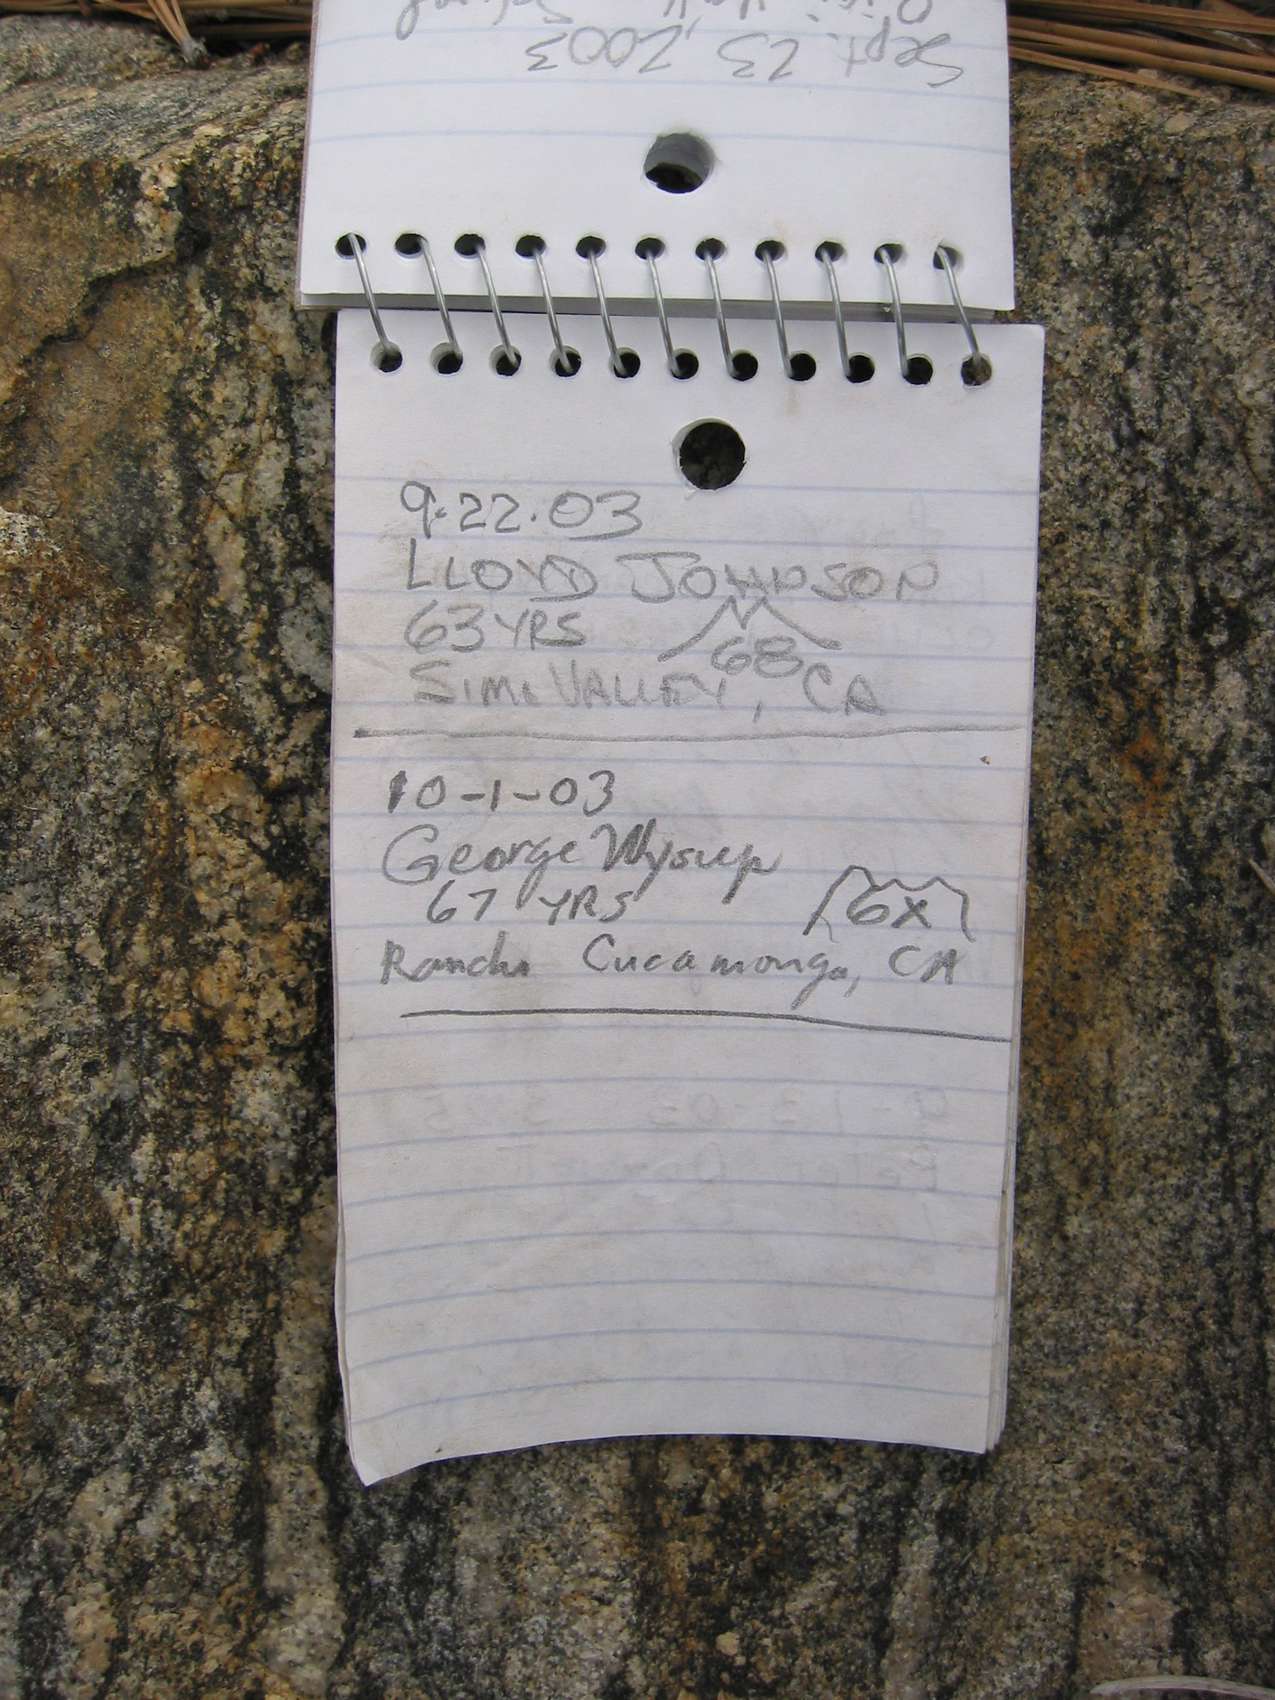 Sept. 23, 2003
9.22.03
LLOYD JOHNSON
63 YRS
68
SIMI VALLEY, CA
10-1-03
George Wysup
67 YRS
6x
Rancho Cucamonga, CA